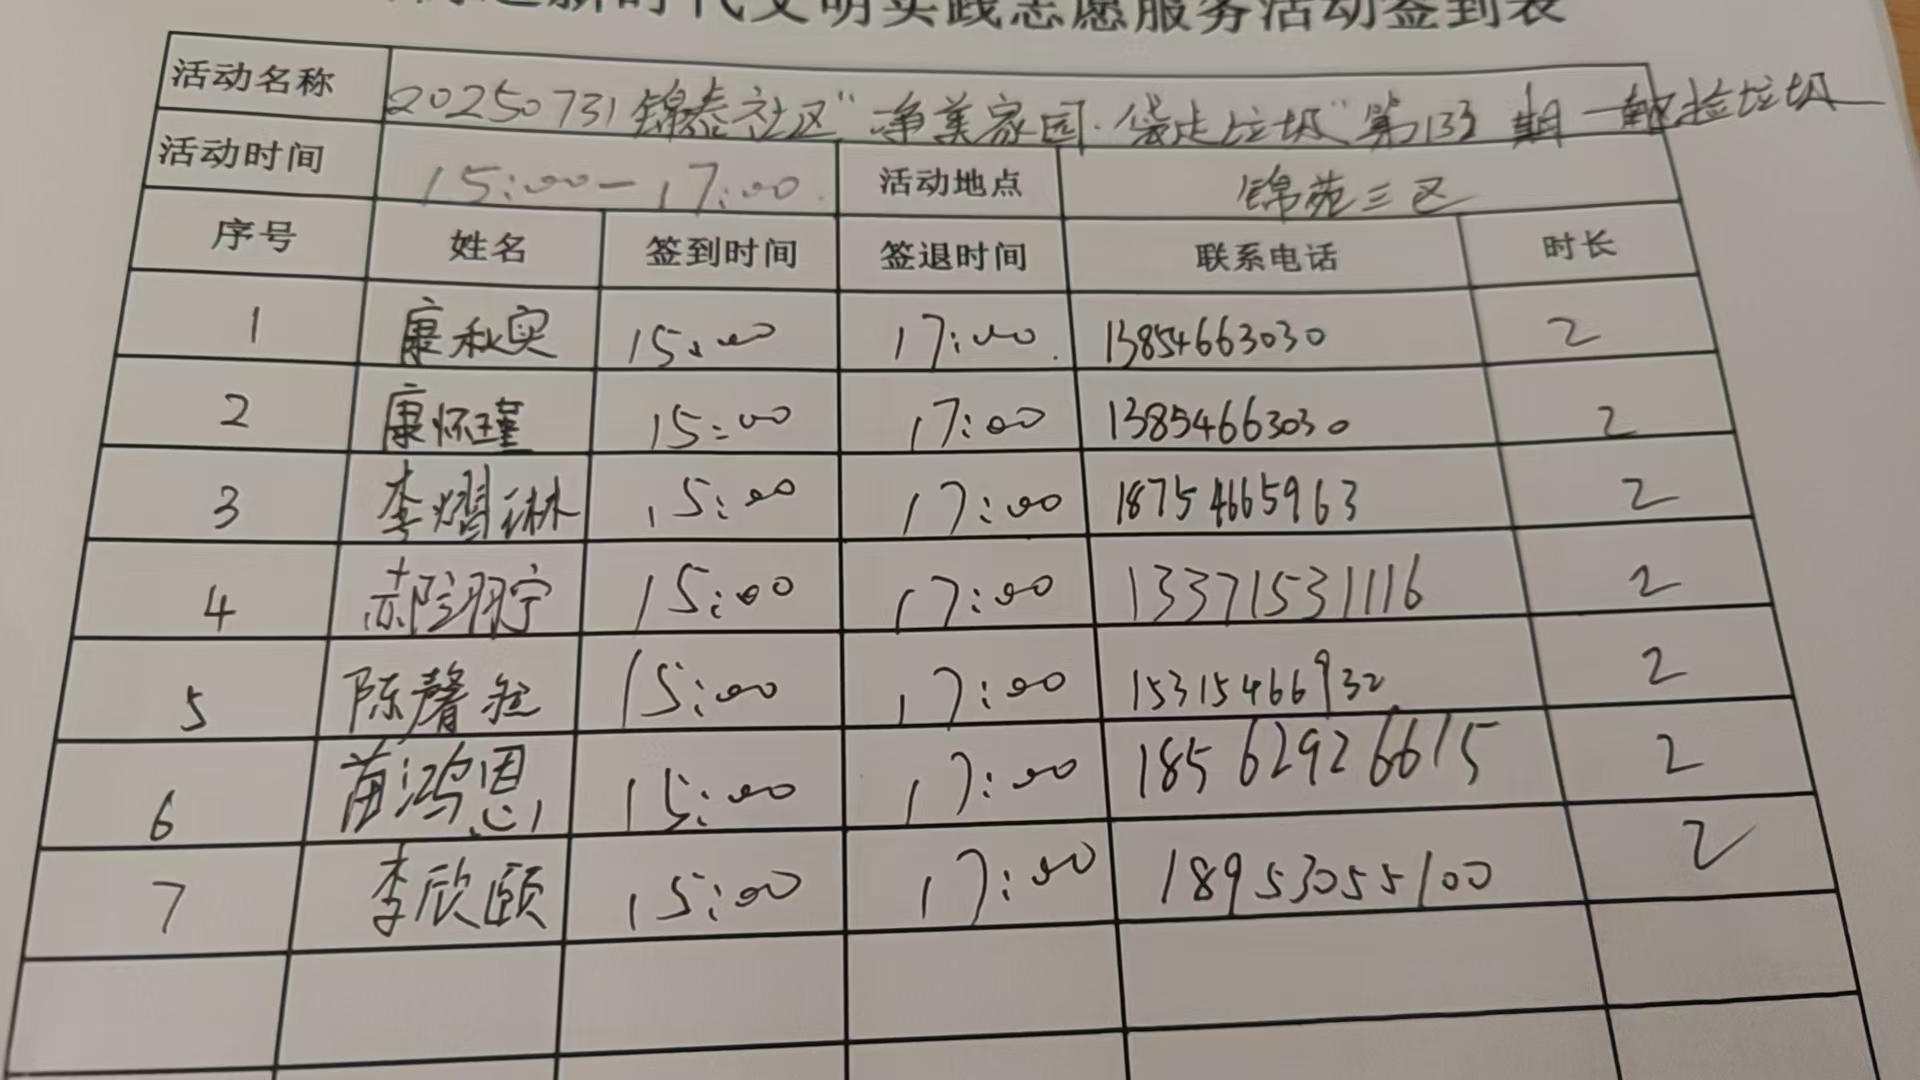 新时代文明实践志愿服务活动签到表
活动名称 20250731锦泰社区"净美家园·袋走垃圾"第133期 捡垃圾
活动时间 15:00-17:00 活动地点 锦苑三区
序号 姓名 签到时间 签退时间 联系电话 时长
1 康秋奕 15:00 17:00 13854663030 2
2 康怀瑾 15:00 17:00 13854663030 2
3 李熠琳 15:00 17:00 18754665963 2
4 郝羽宁 15:00 17:00 13371531116 2
5 陈馨 15:00 17:00 15315466932 2
6 苗鸿恩 15:00 17:00 18562926615 2
7 李欣颐 15:00 17:00 18953055100 2